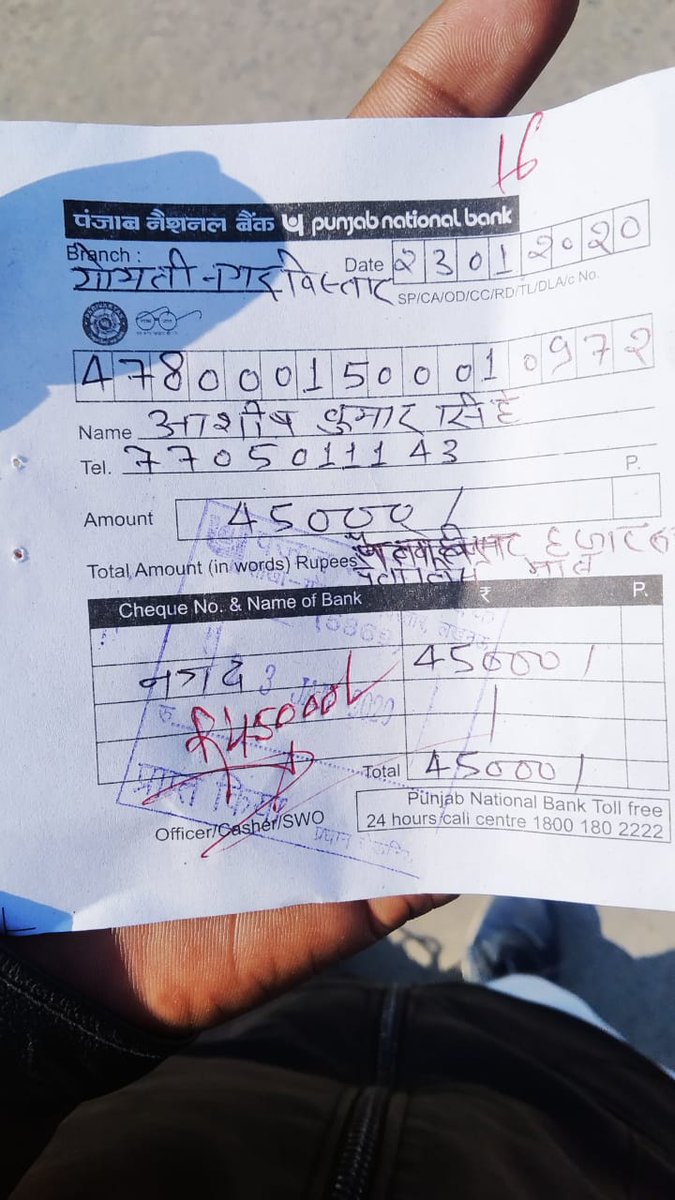 16
पंजाब नैशनल बैंक punjab national bank
Branch :
गोमती नगर विस्तार
Date २३०१२०२०
SP/CA/OD/CC/RD/TL/DLA/c No.
4780001500010972
Name आशीष कुमार सिंह
Tel. 7705011143
P.
Amount 45000/
Total Amount (in words) Rupees
पैंतालिस हजार रु
मात्र
Cheque No. & Name of Bank ₹ P.
नगद 45000/
3 JAN 2020
₹45000/
Total 45000/
Officer/Casher/SWO
Punjab National Bank Toll free
24 hours call centre 1800 180 2222